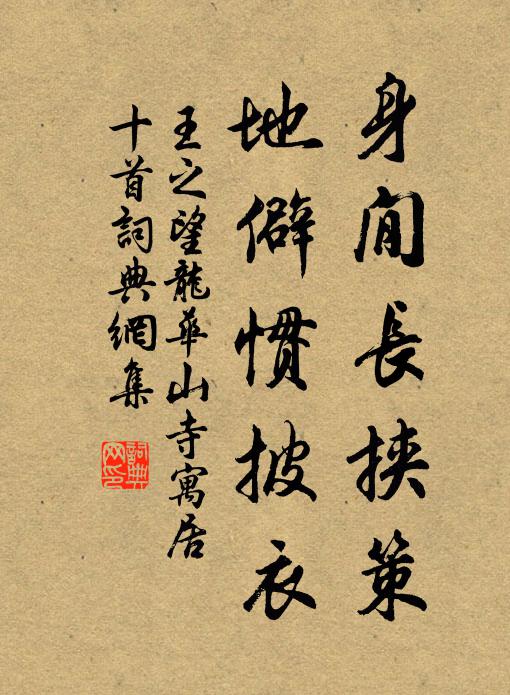 身閒長挾策
地僻慣披衣
王之望龍華山寺寓居
十首詞典網集
詞典網印